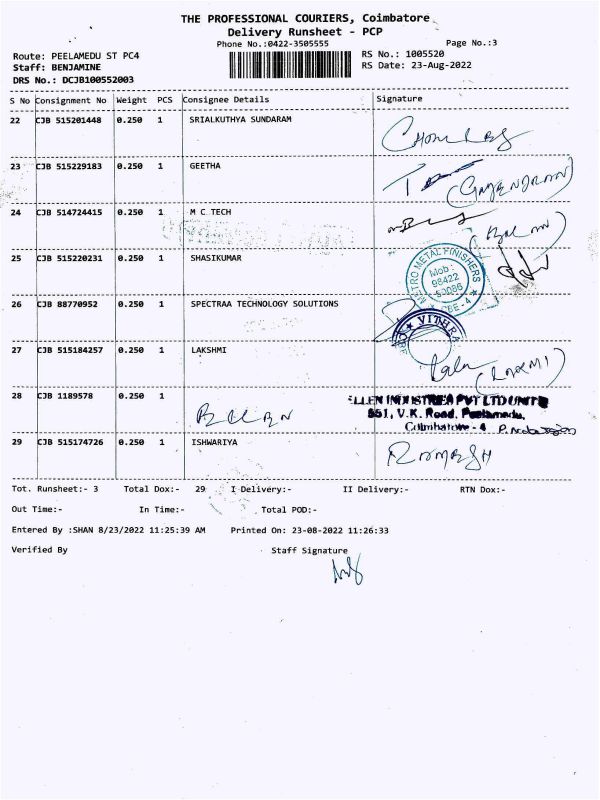 THE PROFESSIONAL COURIERS, Coimbatore
Delivery Runsheet - PCP
Phone No.:0422-3505555 Page No.:3
Route: PEELAMEDU ST PC4 RS No.: 1005520
Staff: BENJAMINE RS Date: 23-Aug-2022
DRS No.: DCJB100552003
S No Consignment No Weight PCS Consignee Details Signature
22 CJB 515201448 0.250 1 SRIALKUTHYA SUNDARAM
23 CJB 515229183 0.250 1 GEETHA
(GAJENDRAN)
24 CJB 514724415 0.250 1 M C TECH
25 CJB 515220231 0.250 1 SHASIKUMAR
METRO METAL FINISHERS
Mob:
98422
CBE - 4
26 CJB 88770952 0.250 1 SPECTRAA TECHNOLOGY SOLUTIONS
27 CJB 515184257 0.250 1 LAKSHMI
28 CJB 1189578 0.250 1
PVT LTD UNIT
551, V.K. Road, Peelamedu,
Coimbatore - 4
29 CJB 515174726 0.250 1 ISHWARIYA
RAMESH
Tot. Runsheet:- 3 Total Dox:- 29 I Delivery:- II Delivery:- RTN Dox:-
Out Time:- In Time:- Total POD:-
Entered By :SHAN 8/23/2022 11:25:39 AM Printed On: 23-08-2022 11:26:33
Verified By Staff Signature